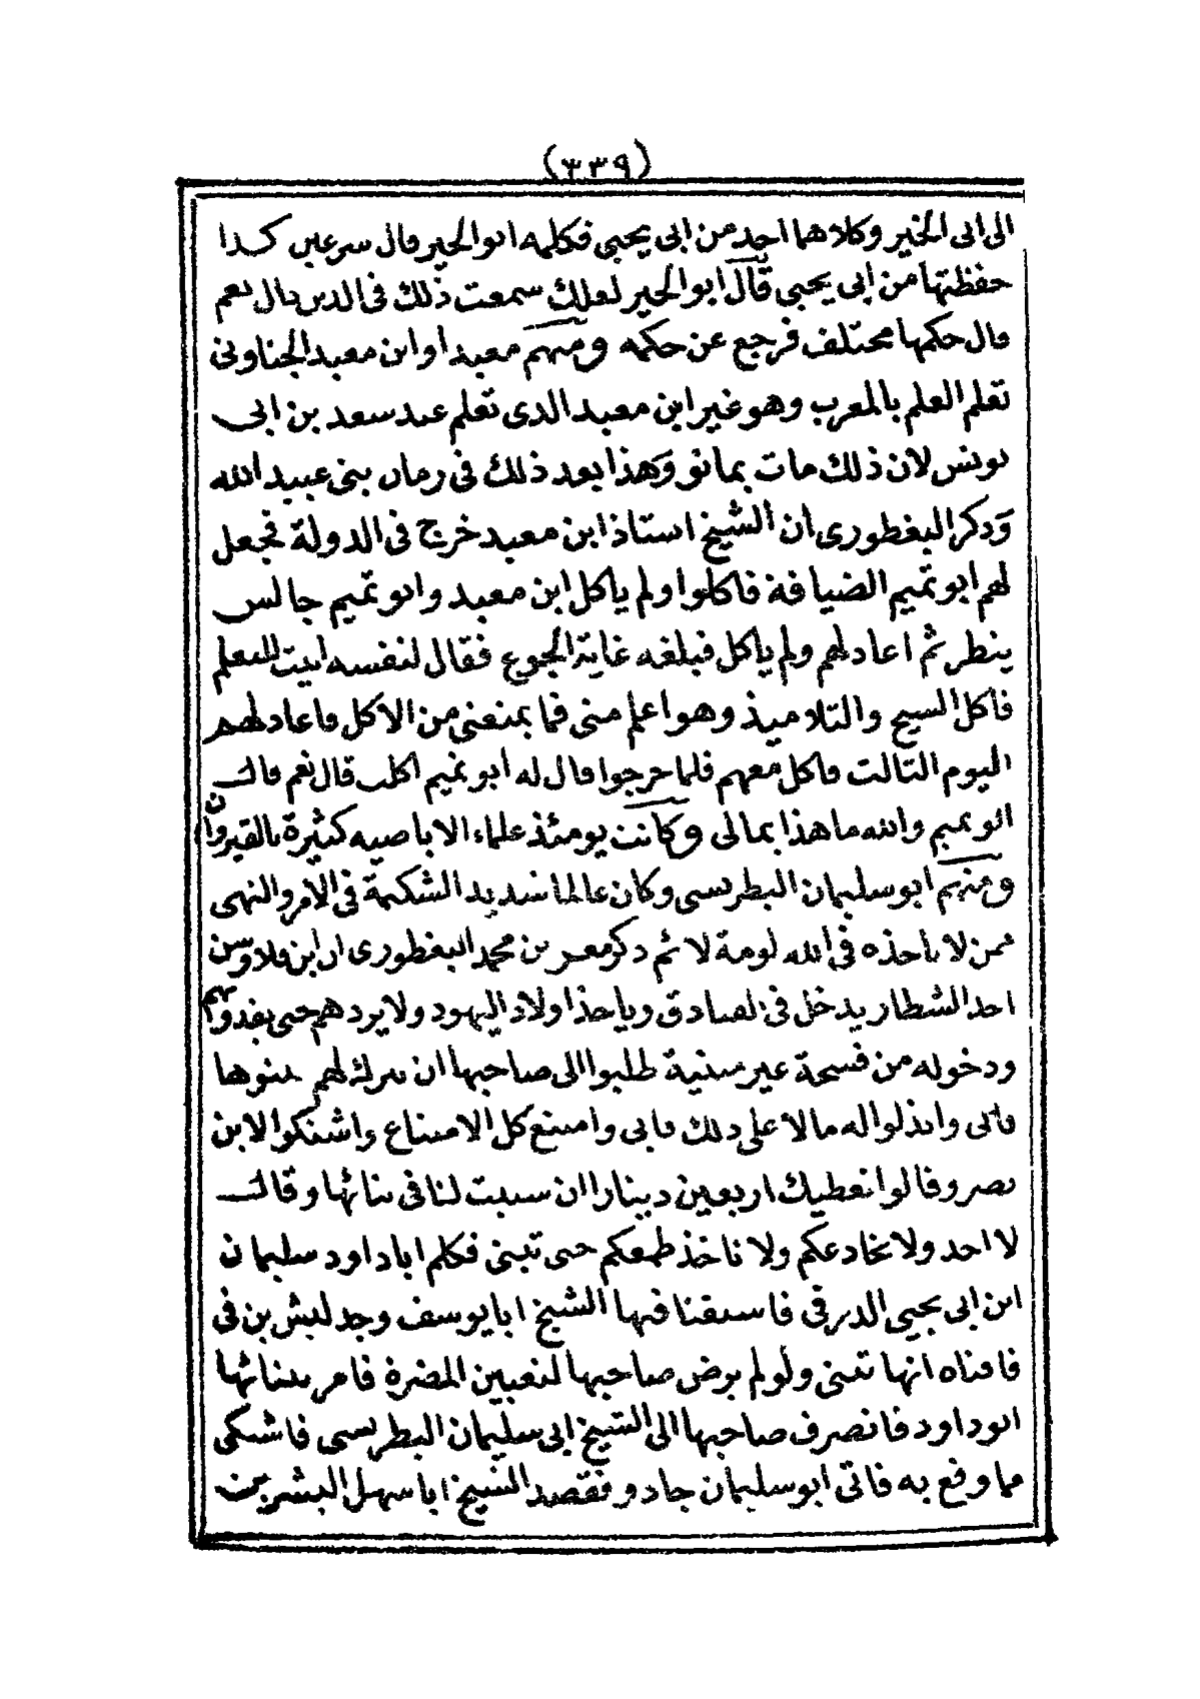 (٣٣٩)
الى ابى الخير وكلاهما احد من ابى يحيى فكلمه ابو الخير وقال سرعين كذا
حفظتها من ابى يحيى قال ابو الخير لعلك سمعت ذلك فى الدين قال نعم
قال حكمها مختلف فرجع عن حكمه ومنهم معبد او ابن معبد الجناونى
تعلم العلم بالمغرب وهو غير ابن معبد الذى تعلم عند سعد بن ابى
يونس لان ذلك مات بمانو وهذا بعد ذلك فى زمان بنى عبيد الله
وذكر البغطورى ان الشيخ استاذ ابن معبد خرج فى الدولة فجعل
لهم ابو تميم الضيافة فاكلوا ولم ياكل ابن معبد وابو تميم جالس
ينظر ثم اعاد لهم ولم ياكل فبلغه غاية الجوع فقال لنفسه اتيت للتعلم
فاكل الشيخ والتلاميذ وهو اعلم منى فما يمنعنى من الاكل فاعاد لهم
اليوم الثالث فاكل معهم فلما خرجوا قال له ابو تميم اكلت قال نعم قال
ابو تميم والله ما هذا بمالى وكانت يومئذ علماء الاباضيه كثيرة بالقيروان
ومنهم ابو سليمان البطرسى وكان عالما شديد الشكيمة فى الامر والنهى
ممن لا ياخذه فى الله لومة لائم ذكر معر بن محمد البغطورى ان ابن فلاوسن
احد الشطار يدخل فى الصادق وياخذ اولاد اليهود ولا يردهم حتى يفدوهم
ودخوله من فسحة غير مبنية طلبوا الى صاحبها ان يترك لهم يبنوها
فابى وابذلوا له مالا على ذلك فابى وامتنع كل الامتناع واشتكوا لابن
نصر وقالوا نعطيك اربعين دينارا ان سببت لنا فى بنائها وقال
لا احد ولا نخادعكم ولا ناخذ طمعكم حتى تبنى فكلم ابا داود سليمان
ابن ابى يحيى الدرفى فاستقنا فيها الشيخ ابا يوسف وجدليش بن فى
فافتاه انها تبنى ولو لم يرض صاحبها لتعيين المضرة فامر ببنائها
ابو داود فانصرف صاحبها الى الشيخ ابى سليمان البطرسى فاشتكى
مما وقع به فاتى ابو سليمان جادو فقصد الشيخ ابا سهل البشر بن